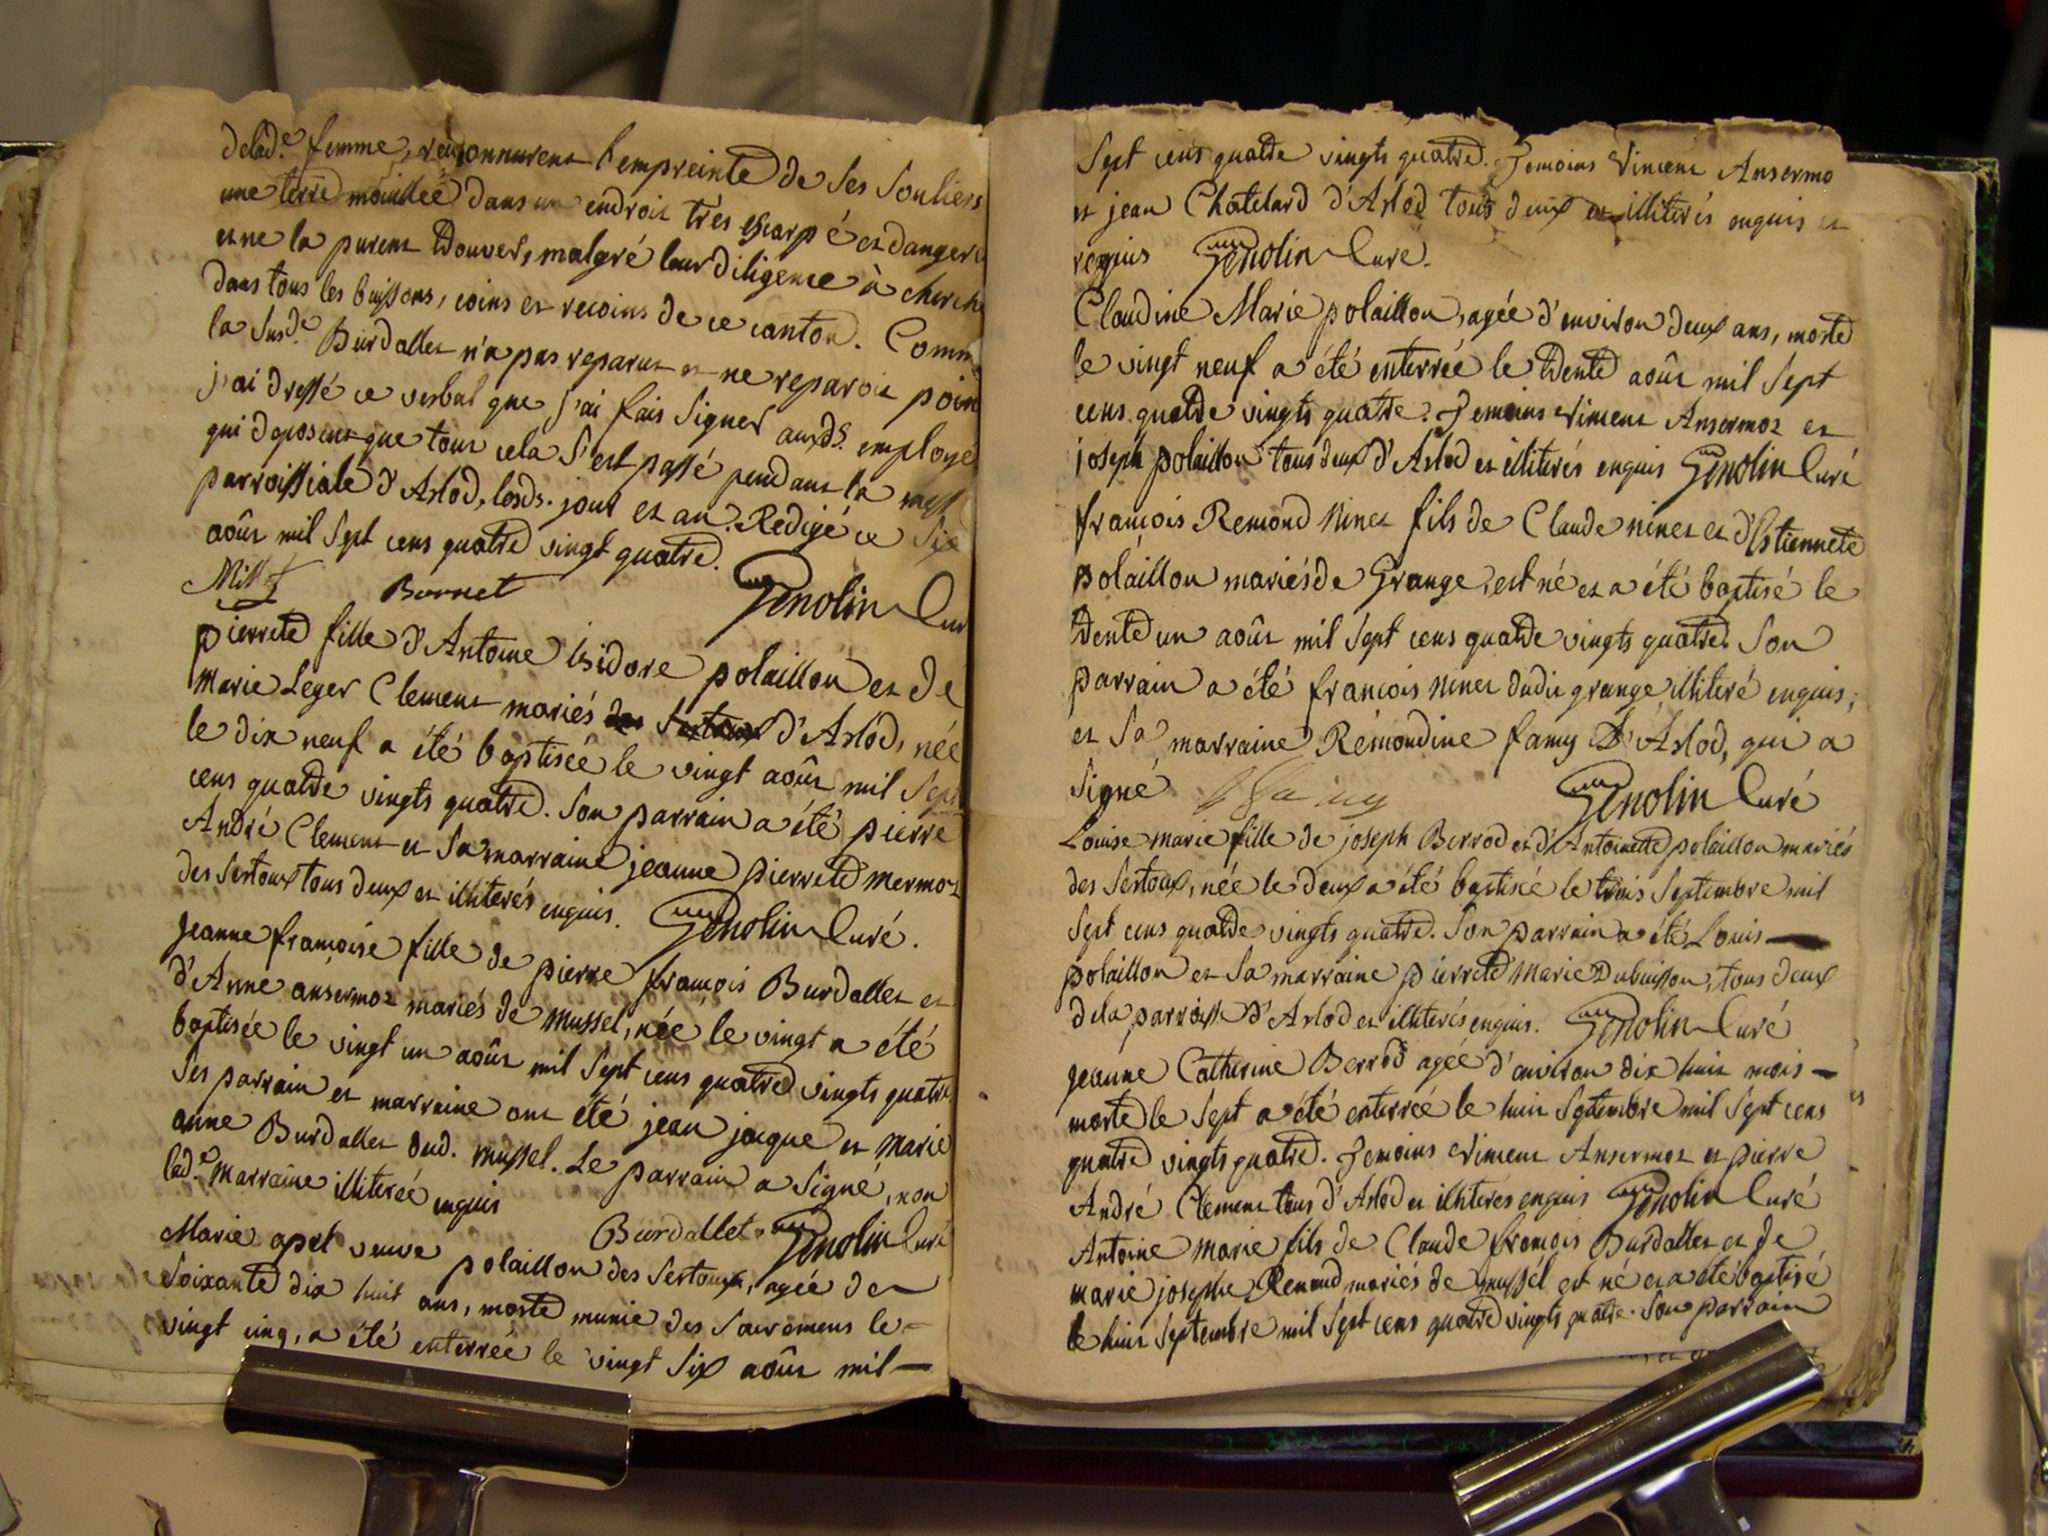 delad.e femme, reconnurent l'empreinte de ses souliers
une terre mouillée dans un endroit très escarpé et dangere
et ne la purent trouver, malgré leur diligence à cherche
dans tous les buissons, coins et recoins de ce canton. Comm
la susd.e Burdallet n'a pas reparut et ne reparoit poin
j'ai dressé ce verbal que j'ai fais signer auxds. employé
qui deposent que tout cela s'est passé pendant la mess
parroissiale d'Arlod, lesds. jour et an. Redigé ce six
août mil sept cens quatre vingt quatre.
Burnet Genolin Cur
pierrete fille d'Antoine isidore polaillon et de
Marie Leger Clement mariés d'Arlod, née
le dix neuf a été baptisée le vingt août mil sept
cens quatre vingts quatre. Son parrain a été pierre
André Clement et sa marraine jeanne pierrete mermoz
des sertoux tous deux et illiterés enquis. Genolin Curé.
jeanne françoise fille de pierre françois Burdallet et
d'Anne ansermoz mariés de mussel, née le vingt a été
baptisée le vingt un août mil sept cens quatre vingts quatre
Ses parrain et marraine ont été jean jacque et marie
anne Burdallet dud. mussel. Le parrain a signé, non
lad.e marraine illiterée enquis
Burdallet Genolin Curé
Marie apret veuve polaillon des sertoux, agée de
soixante dix huit ans, morte munie des sacremens le
vingt cinq, a été enterrée le vingt six août mil
sept cens quatre vingts quatre. Temoins Vincent Ansermo
et jean Chatelard d'Arlod tous deux et illiterés enquis et
requis Genolin Curé.
Claudine Marie polaillon, agée d'environ deux ans, morte
le vingt neuf a été enterrée le trente août mil sept
cens quatre vingts quatre. Temoins Vincent Ansermoz et
joseph polaillon tous deux d'Arlod et illiterés enquis Genolin Curé
françois Remond ninet fils de Claude ninet et d'Estiennete
polaillon mariés de Grange, est né et a été baptisé le
trente un août mil sept cens quatre vingts quatre. Son
parrain a été françois ninet dudit grange illiteré enquis,
et sa marraine Remondine famy d'Arlod, qui a
signé Genolin Curé
Louise marie fille de joseph Berrod et d'Antoinette polaillon mariés
des Sertoux, née le deux a été baptisée le trois septembre mil
sept cens quatre vingts quatre. Son parrain a été Louis
polaillon et sa marraine pierrete Marie Dubuisson, tous deux
de la parroisse d'Arlod et illiterés enquis. Genolin Curé
jeanne Catherine Berrod agée d'environ dix huit mois
morte le sept a été enterrée le huit septembre mil sept cens
quatre vingts quatre. Temoins Vincent Ansermoz et pierre
André Clement tous d'Arlod et illiterés enquis Genolin Curé
Antoine marie fils de Claude françois Burdallet et de
marie josephe Remond mariés de mussel est né et a été baptisé
le huit septembre mil sept cens quatre vingts quatre. Son parrain